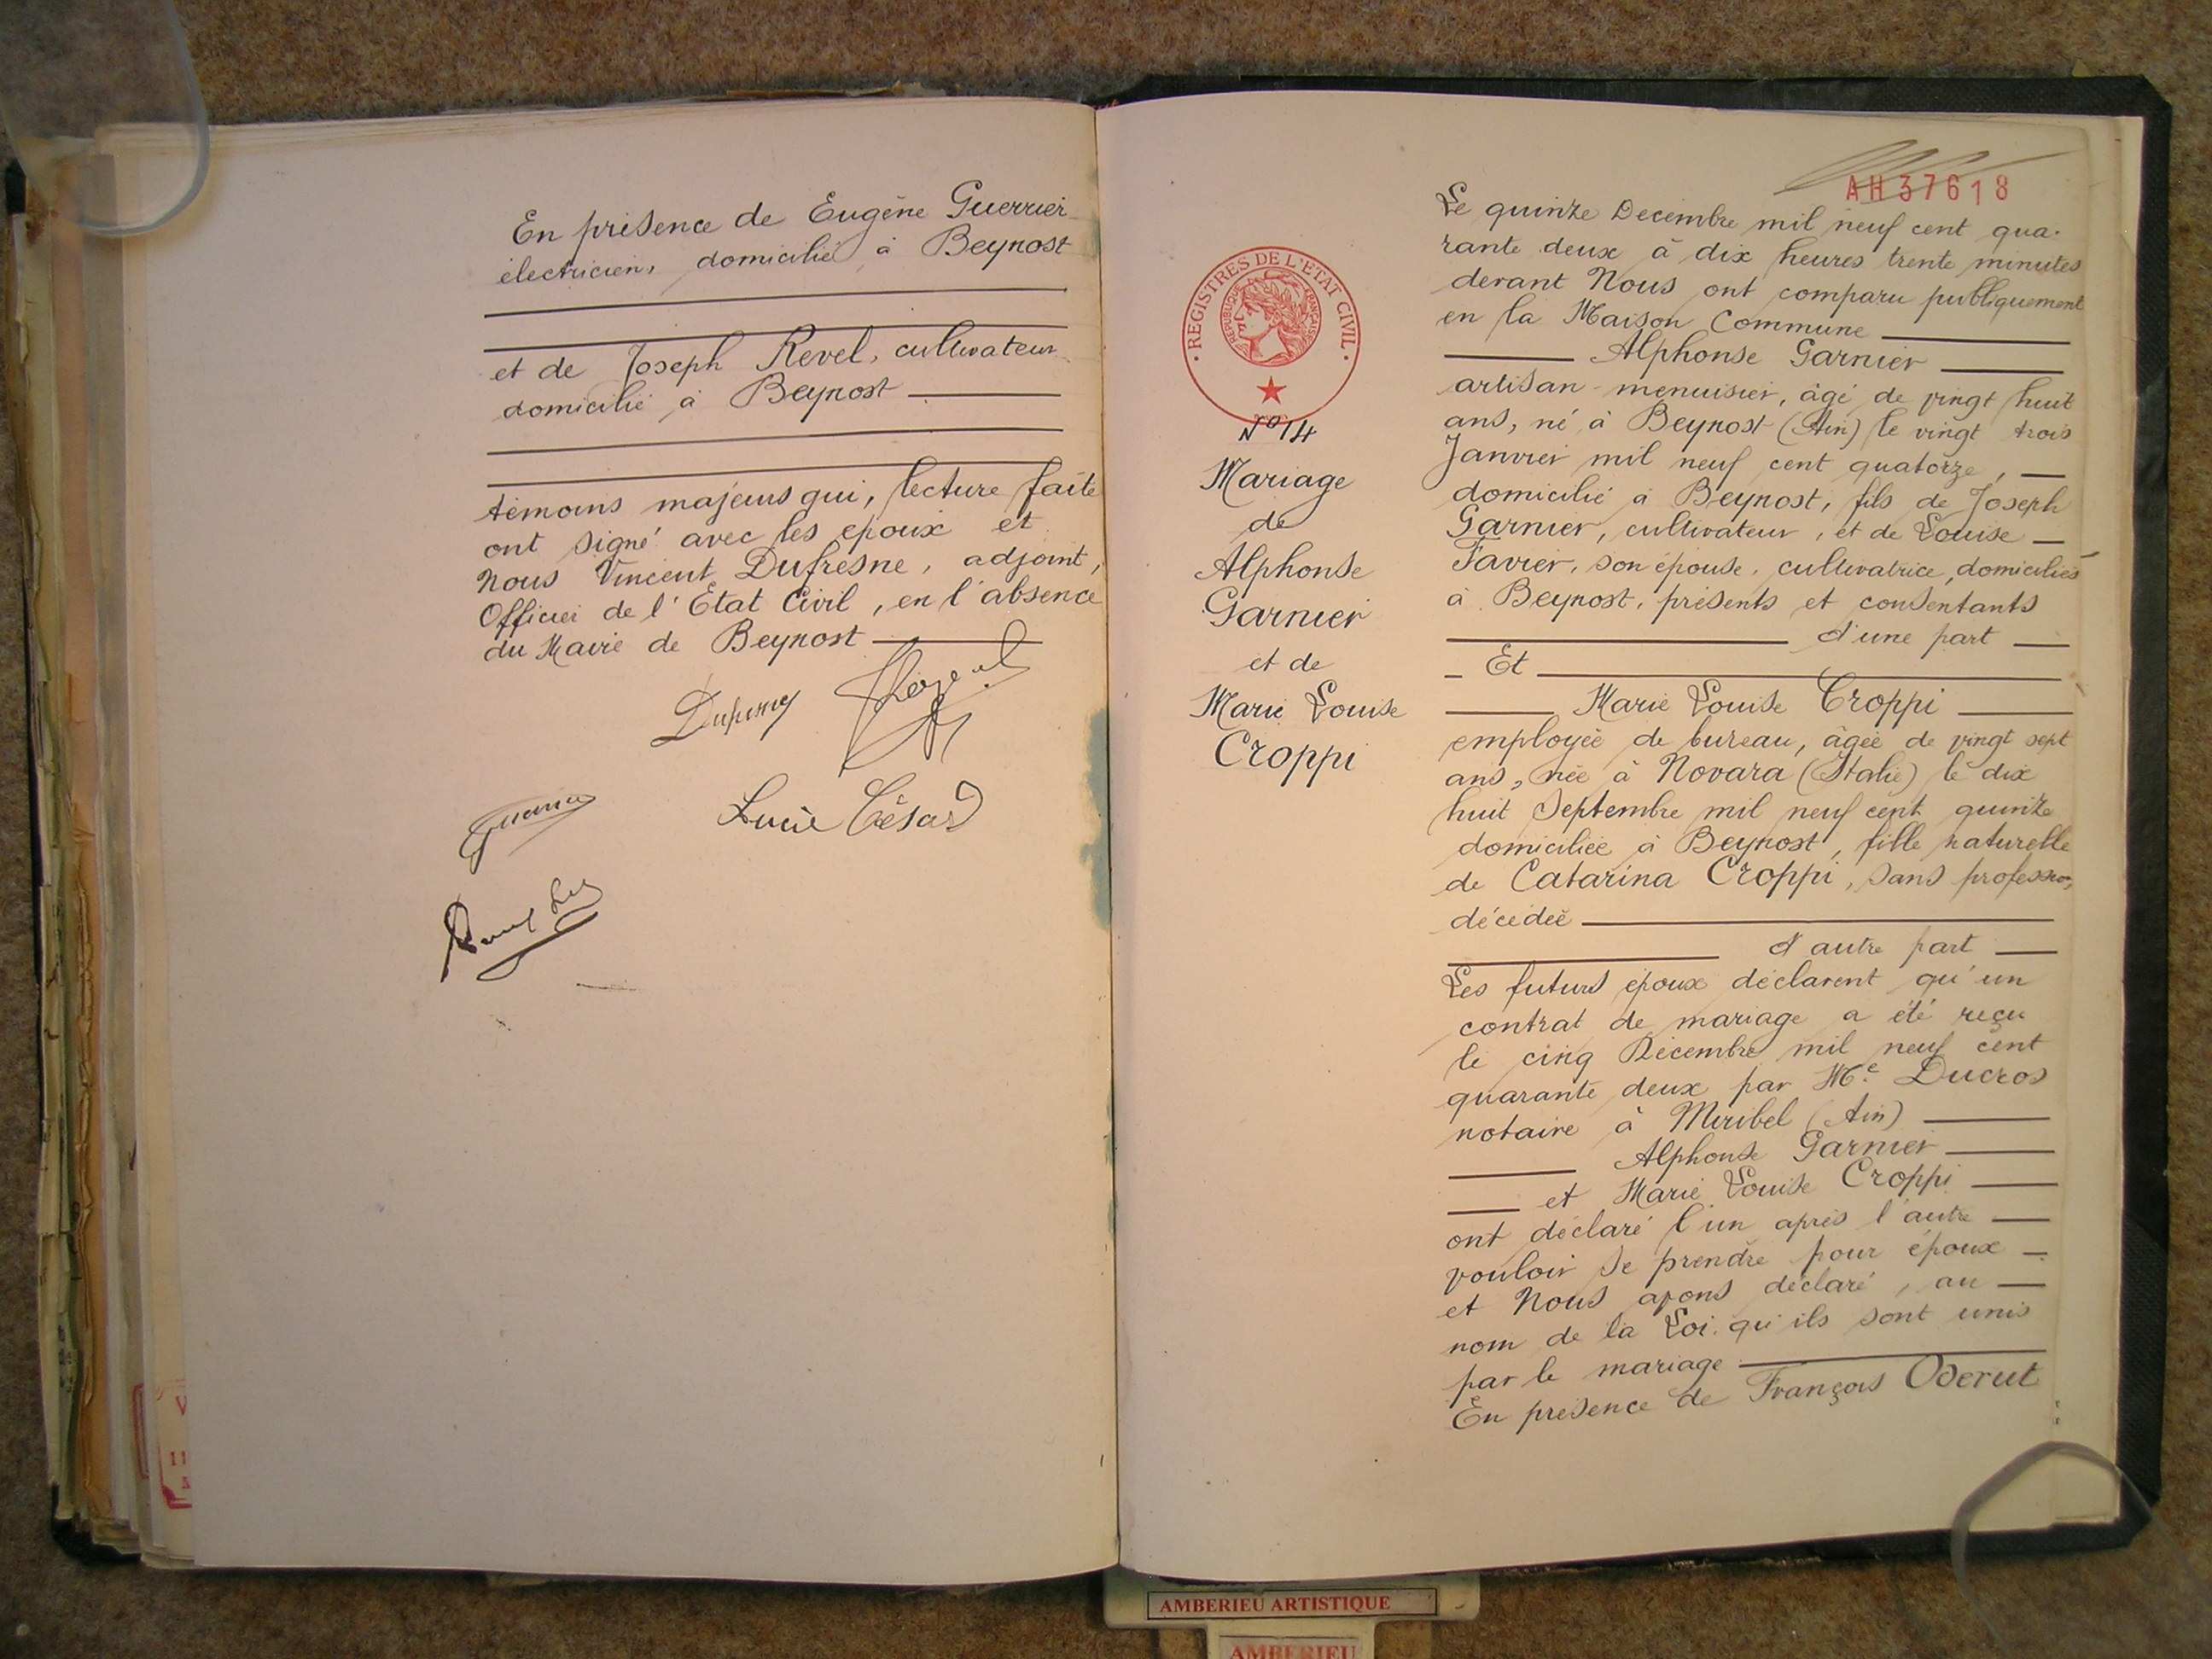 En présence de Eugène Guerrier
électricien, domicilié à Beynost
et de Joseph Revel, cultivateur
domicilié à Beynost
témoins majeurs qui, lecture faite
ont signé avec les epoux et
Nous Vincent Dufresne, adjoint,
Officier de l'Etat Civil, en l'absence
du Maire de Beynost
Lucie César
AH37618
REGISTRES DE L'ETAT CIVIL
REPUBLIQUE FRANÇAISE
N°14
Mariage
de
Alphonse
Garnier
et de
Marie Louise
Croppi
Le quinze Decembre mil neuf cent qua-
rante deux à dix heures trente minutes
devant Nous ont comparu publiquement
en la Maison Commune
Alphonse Garnier
artisan menuisier, âgé de vingt huit
ans, né à Beynost (Ain) le vingt trois
Janvier mil neuf cent quatorze,
domicilié à Beynost, fils de Joseph
Garnier, cultivateur, et de Louise
Favier, son épouse, cultivatrice, domiciliés
à Beynost, présents et consentants
d'une part
Et
Marie Louise Croppi
employée de bureau, âgée de vingt sept
ans, née à Novara (Italie) le dix
huit Septembre mil neuf cent quinze
domiciliée à Beynost, fille naturelle
de Catarina Croppi, sans profession,
décédée
d'autre part
Les futurs époux déclarent qu'un
contrat de mariage a été reçu
le cinq Décembre mil neuf cent
quarante deux par Me Ducros
notaire à Miribel (Ain)
Alphonse Garnier
et Marie Louise Croppi
ont déclaré l'un après l'autre
vouloir se prendre pour époux
et Nous avons déclaré, au
nom de la Loi qu'ils sont unis
par le mariage
En présence de François Oderut
AMBERIEU ARTISTIQUE
AMBERIEU